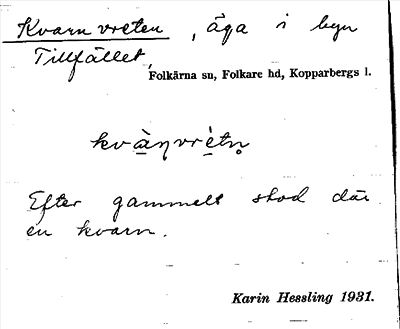 Kvarnvreten, äga i byn
Tillfället,
Folkärna sn, Folkare hd, Kopparbergs l.
kvànvrètn̥
Efter gammelt stod där
en kvarn.
Karin Hessling 1931.